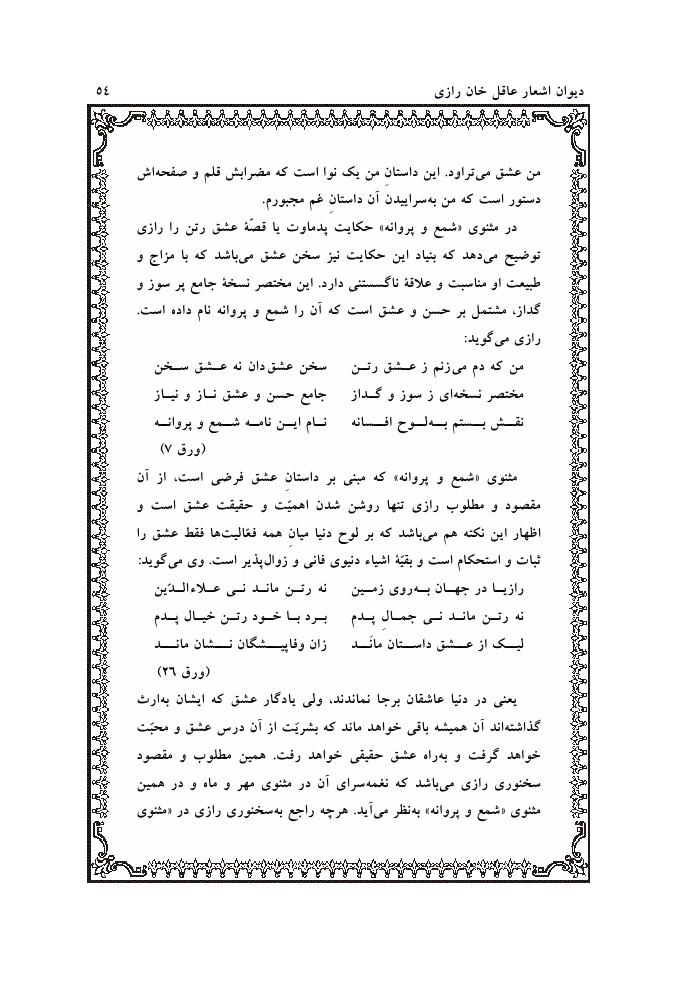 دیوان اشعار عاقل خان رازی ٥٤
من عشق می‌تراود. این داستانِ من یک نوا است که مضرابش قلم و صفحه‌اش
دستور است که من به‌سراییدن آن داستانِ غم مجبورم.
در مثنوی «شمع و پروانه» حکایت پدماوت یا قصّهٔ عشق رتن را رازی
توضیح می‌دهد که بنیاد این حکایت نیز سخن عشق می‌باشد که با مزاج و
طبیعت او مناسبت و علاقهٔ ناگسستنی دارد. این مختصر نسخهٔ جامع پر سوز و
گداز، مشتمل بر حسن و عشق است که آن را شمع و پروانه نام داده است.
رازی می‌گوید:
من که دم می‌زنم ز عـشق رتـن سخن عشق‌دان نه عـشق سـخن
مختصر نسخه‌ای ز سوز و گـداز جامع حسن و عشق ناز و نیـاز
نقـش بـستم بـه‌لـوح افـسانه نـام ایـن نامـه شـمع و پروانـه
(ورق ٧)
مثنوی «شمع و پروانه» که مبنی بر داستانِ عشق فرضی است، از آن
مقصود و مطلوب رازی تنها روشن شدن اهمیّت و حقیقت عشق است و
اظهار این نکته هم می‌باشد که بر لوح دنیا میانِ همه فعّالیت‌ها فقط عشق را
ثبات و استحکام است و بقیّهٔ اشیاء دنیوی فانی و زوال‌پذیر است. وی می‌گوید:
رازیـا در جهـان بـه‌روی زمـین نه رتـن مانـد نـی عـلاءالـدّین
نه رتـن مانـد نـی جمـالِ پـدم بـرد بـا خـود رتـن خیـال پـدم
لیـک از عـشق داسـتان مانَـد زان وفاپیـشگان نـشان مانـد
(ورق ٢٦)
یعنی در دنیا عاشقان برجا نماندند، ولی یادگار عشق که ایشان به‌ارث
گذاشته‌اند آن همیشه باقی خواهد ماند که بشریّت از آن درس عشق و محبّت
خواهد گرفت و به‌راه عشق حقیقی خواهد رفت. همین مطلوب و مقصود
سخنوری رازی می‌باشد که نغمه‌سرای آن در مثنوی مهر و ماه و در همین
مثنوی «شمع و پروانه» به‌نظر می‌آید. هرچه راجع به‌سخنوری رازی در «مثنوی